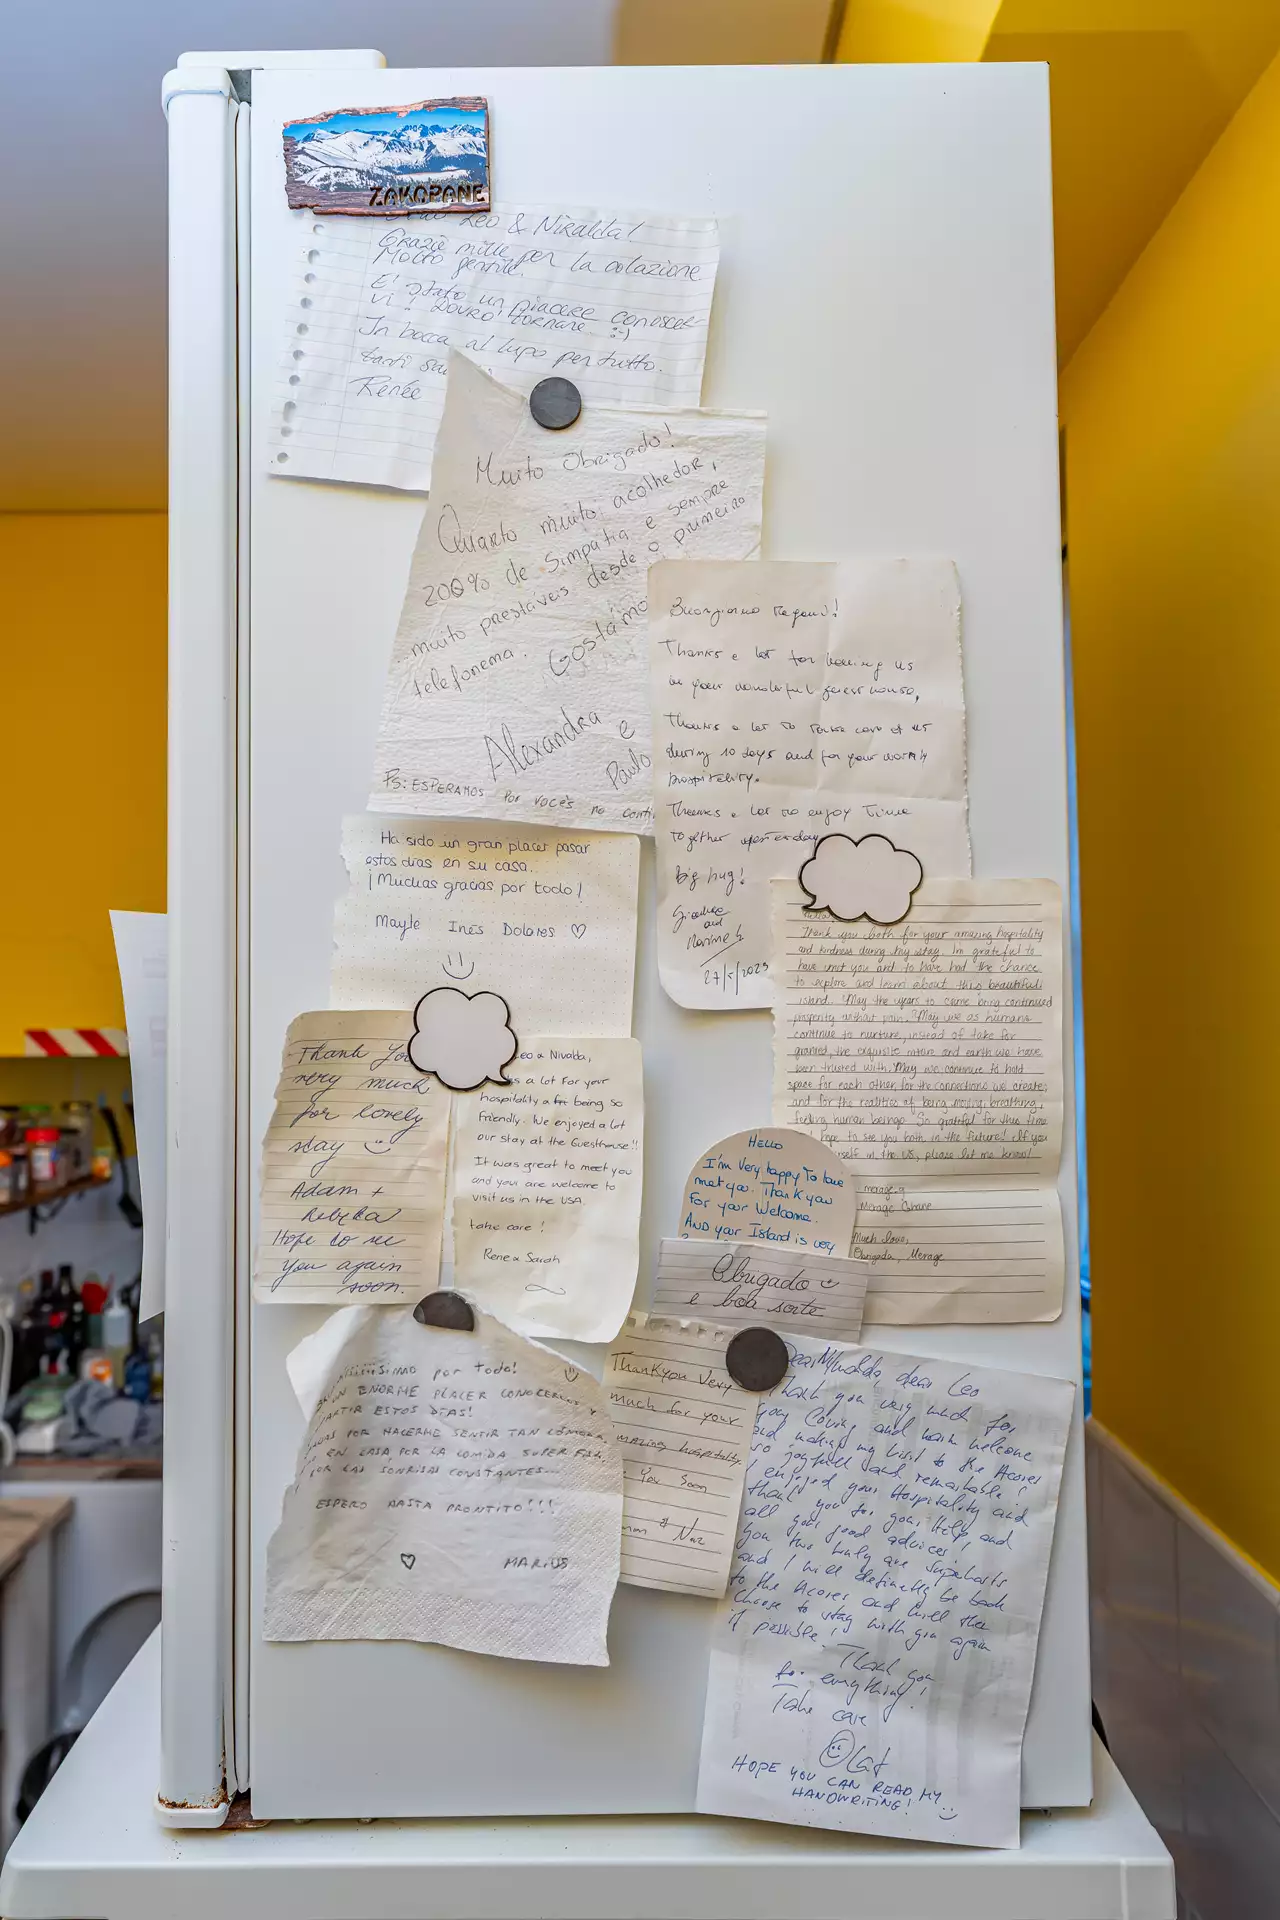 ZAKOPANE
Leo & Niralda!
Grazie mille per la colazione
Molto gentile.
E' stato un piacere conoscer-
vi! Dovrò tornare. :-)
In bocca al lupo per tutto.
tanti
Renée
Muito Obrigado!
Quarto muito acolhedor,
200% de simpatia e sempre
muito prestáveis desde o primeiro
telefonema. Gostámo
Alexandra e
Paulo
Ps: ESPERAMOS POR VOCÊS no conti
Buongiorno Ragazzi!
Thanks a lot for having us
in your wonderful guest house,
Thanks a lot to take care of us
during 10 days and for your warm
hospitality.
Thanks a lot to enjoy time
together yesterday
big hug!
and
27/5/2023
Ha sido un gran placer pasar
estos días en su casa.
¡Muchas gracias por todo!
Mayte Inés Dolores ♡
Hello
Thank you both for your amazing hospitality
and kindness during my stay. I'm grateful to
have met you and to have had the chance
to explore and learn about this beautiful
island. May the years to come bring continued
prosperity without pain. May we as humans
continue to nurture, instead of take for
granted, the exquisite nature and earth we have
been trusted with. May we continue to hold
space for each other, for the connections we create,
and for the realities of being moving, breathing,
feeling human beings. So grateful for this time
hope to see you both in the future! If you
self in the US, please let me know!
merage.g
Merage Ghane
Much love,
Obrigada, Merage
Thank You
very much
for lovely
stay
Adam +
Rebeka
Hope to see
you again
soon.
eo & Nivalda,
s a lot for your
hospitality a for being so
friendly. We enjoyed a lot
our stay at the Guesthouse!!
It was great to meet you
and you are welcome to
visit us in the USA.
take care!
Rene & Sarah
HELLO
I'm very happy to have
met you. Thank you
for your Welcome.
AND your Island is very
Obrigado
e boa sorte
por todo!
UN ENORME PLACER CONOCERLOS Y
ARTIR ESTOS DÍAS!
POR HACERME SENTIR TAN CÓMODA
EN CASA POR LA COMIDA SUPER
POR LAS SONRISAS CONSTANTES...
ESPERO HASTA PRONTITO!!!
♡ MARIUS
Thankyou Very
much for your
mazing hospitality.
You Soon
& Naz
Dear Nivalda, dear Leo
Thank you very much for
your loving and warm welcome
and making my visit to the Acores
so joyfull and remarkable!
I enjoyed your Hospitality and
thank you for your Help, and
all your good advices!
You two truly are Superhosts
and I will definetly be back
to the Acores and will then
choose to stay with you again
if possible!
Thank you
for everything!
Take care
Olaf
HOPE YOU CAN READ MY
HANDWRITING!